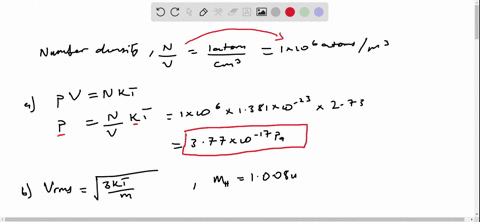 Number density, N/V = 1 atom/cm³ = 1×10⁶ atoms/m³
a) PV = NKT
P = N/V KT = 1×10⁶ × 1.381×10⁻²³ × 2.73
= 3.77×10⁻¹⁷ Pa
b) Vrms = √(3KT/m) , m_H = 1.008u